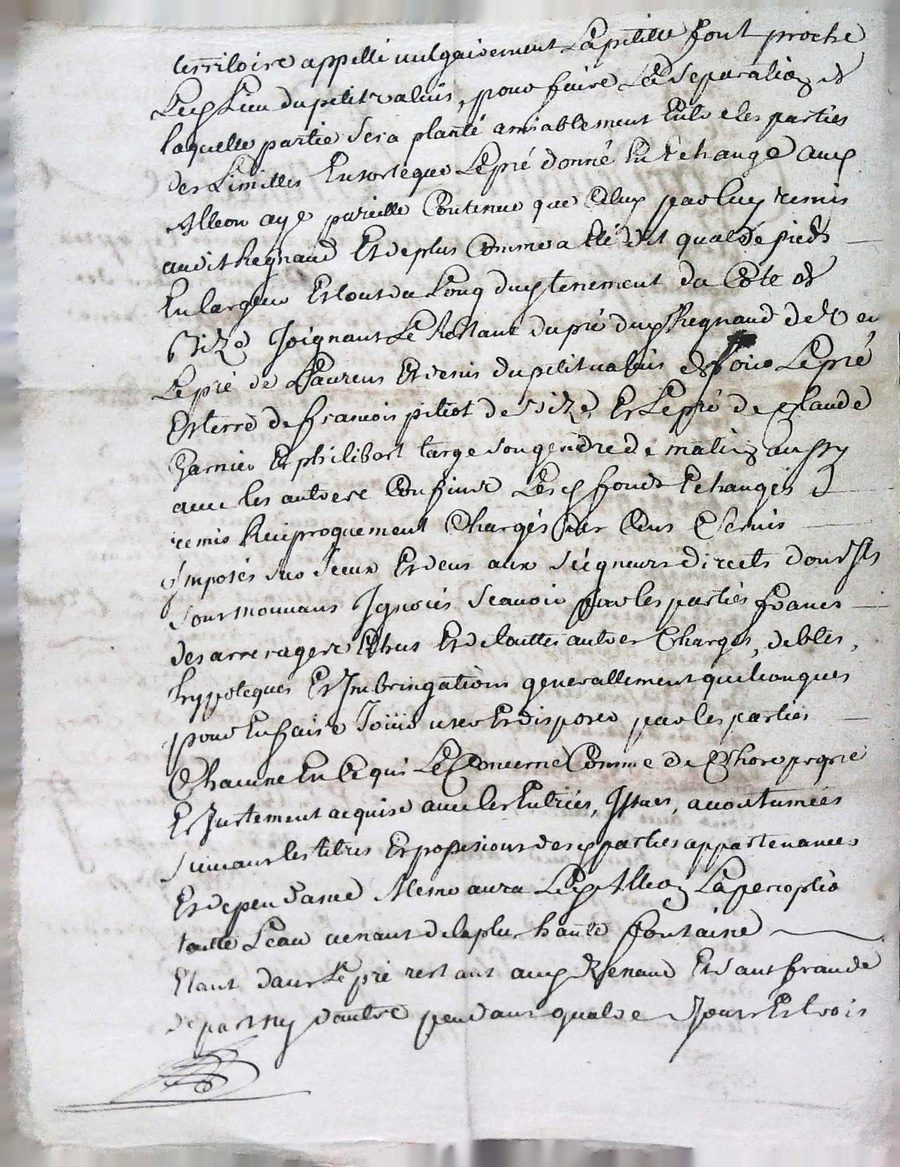 territoire appellé vulgairement La petitte font proche
Led Lieu du petit valuis, pour faire La Separation de
laquelle partie Sera planté amiablement Entre les parties
des Limittes En sorte que Le pré donné En Echange aud
Alleon aye pareille Contenue que Celuy par luy remis
audit Regnaud Et de plus Comme a Eté dit quatre pieds
En largeur Et tout du Long dud tenement du Côté de
Size Joignant Le Restant du pré dud Regnaud de
Le pré de Laurens Et denis du petit valuis de Le pré
Et terre de francois pitiot de Size, Et Le pré de Claude
Garnier Et philibert large son gendre de aussy
avec les autres Confins Lesd fonds Echangés
remis Reciproquement Chargés des Cens Et Servis
Imposés sur Iceux Et deus aux Seigneurs directs dont Ils
Sont mouvans Ignorés Scavoir par les parties francs
des arrerages Echus Et de touttes autres Charges, debtes,
hypoteques Et Imbringations generallement quelconques
pour En faire Jouir user Et disposer par les parties
Chacune En Ce qui Le Concerne Comme de Chose propre
Et Justement acquise avec les Entrées, Issues, acoutumées
Suivant les titres Et possessions desd parties appartenances
Et dependance Mesme aura Led Alleon La
toutte L'eau venant de la plus haute fontaine
Etant dans Le pré restant aud Renaud Et sans fraude
de part ny d'autre pendant quatre Jours Et trois